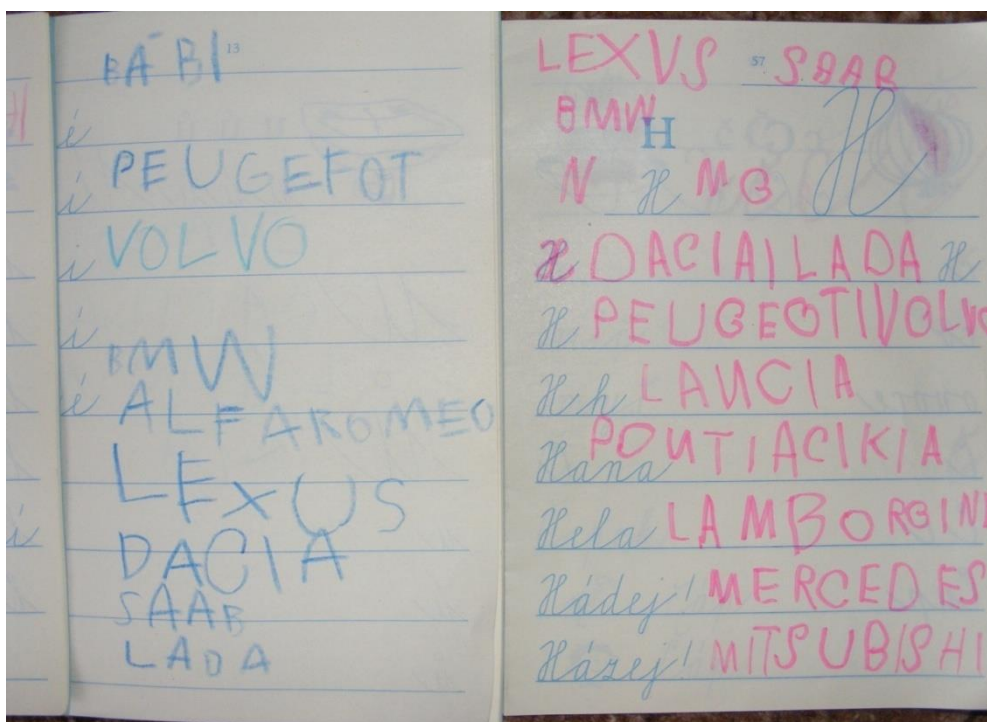 BÁBI 13
é
í PEUGEFOT
i VOLVO
í
BMW
é ALFAROMEO
LEXUS
DACIA
SAAB
LADA
í
LEXUS 57 SAAB
BMW H H
N H MG
H DACIA|LADA H
H PEUGEOTIVOLVO
H h LANCIA
PONTIACIKIA
Hana
Hela LAMBORGINI
Hádej! MERCEDES
Házej! MITSUBISHI